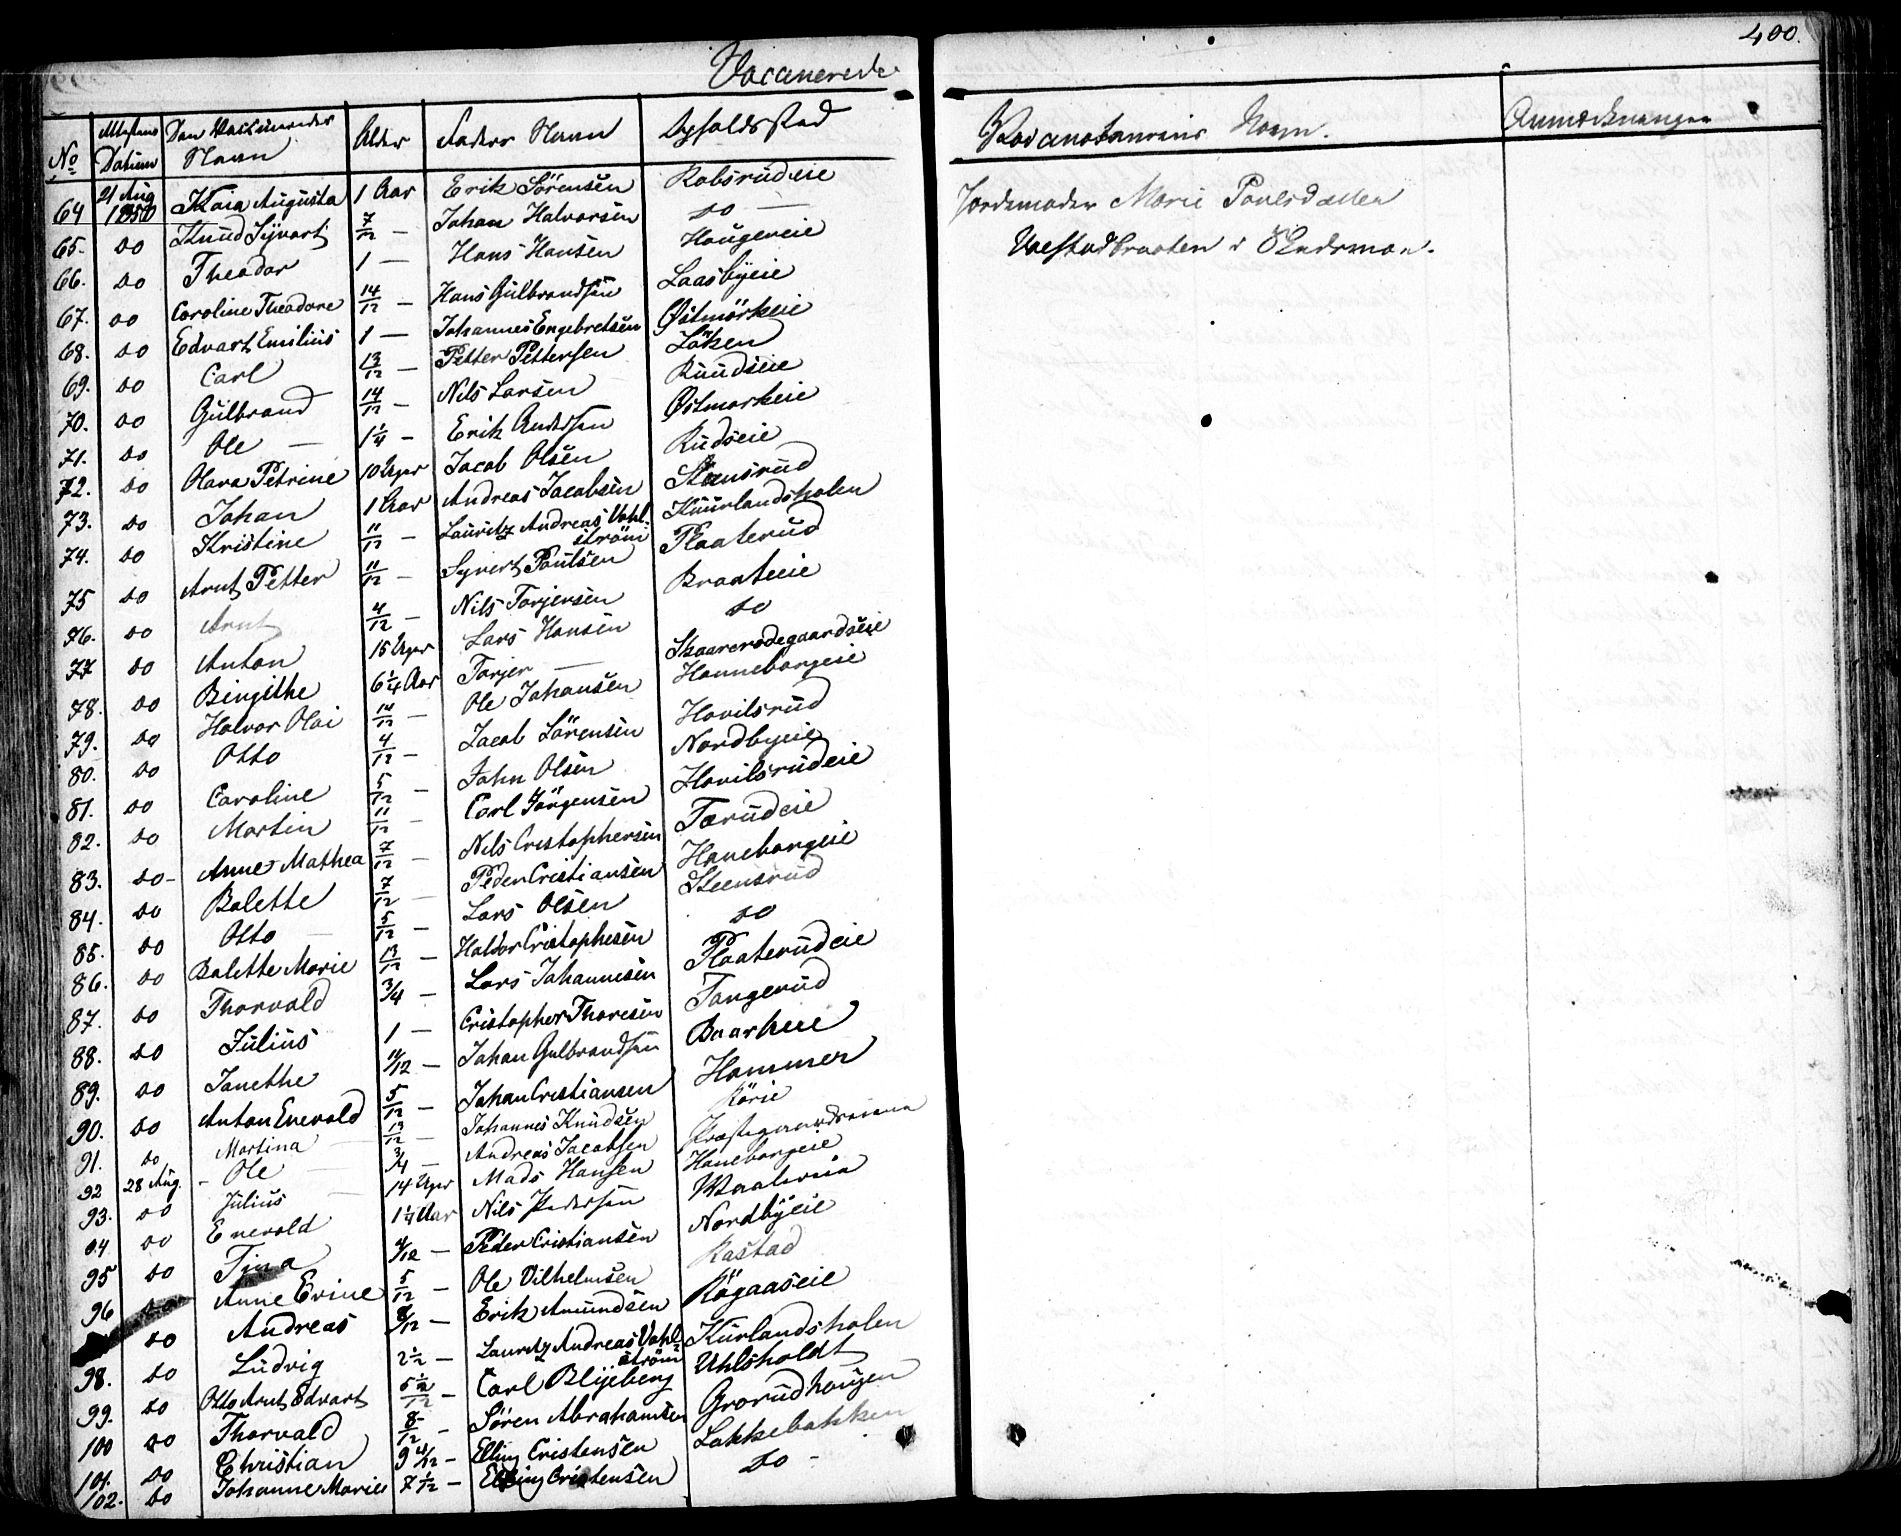 400.
Vaccinerede
No Attestens Datum Den Vaccineredes Navn Alder Faders Navn Opholdssted Vaccinateurens Navn. Anmærkninger
64 21 Aug 1850 Kaia Augusta 1 Aar Erik Sörensen Robsrudeie Jordemoder Marie Poulsdatter
65. do Knud Syvart 7/12 — Johan Halvorsen do —
66. do Theodor 1 — Hans Hansen Haugereie
67. do Caroline Theodore 14/12 — Hans Gulbrandsen Laasbyeie
68. do Edvart Emilius 1 — Johannes Engebretsen Östmörkeie
69. do Carl 13/12 — Petter Pettersen Löken
70. do Gulbrand 14/12 — Nils Larsen Ruudseie
71. do Ole — 1 1/4 — Erik Andersen Östmorkeie
72. do Olava Petrine 10 Uger Jacob Olsen Rudseie
73. do Johan 1 Aar Andreas Jacobsen Steensrud
74. do Kristine 11/12 — Lauritz Andreas Vahlström Kuurlandsholen
75 do Arnt Petter 11/12 — Syvert Poulsen Plaaterud
76. do Arnt 4/12 — Nils Torjersen Braateeie
77 do Anton 15 Uger Lars Hansen do
78. do Birgithe 6 1/4 Aar Torjer — Skaarerödegaardseie
79. do Halvor Olai 14/12 — Ole Johansen Hanneborgeie
80. do Otto 4/12 — Jacob Sörensen Hovilsrud
81. do Caroline 5/12 — John Olsen Nordbyeie
82. do Martin 11/12 — Carl Jörgensen Hovilsrudeie
83. do — Anne Mathea 7/12 — Nils Cristophersen Tærudeie
84. do Bolette 7/12 — Peder Cristiansen Haneborgeie
85. do Otto — 5/12 — Lars Olsen Steensrud
86. do Bolette Marie 13/12 — Halvor Cristophesen do
87. do Thorvald 3/4 — Lars Johannesen Plaaterudeie
88. do Julius 1 — Cristopher Thoresen Tangerud
89. do Janethe 14/12 — Johan Gulbrandsen
90. do Anton Enevold 5/12 — Johan Cristiansen Hammer
91. do Martina 13/12 — Johannes Knudsen
92 28 Aug. Ole 3/4 — Andreas Jacobsen
93. do Julius 14 Uger Mads Hansen Haneborgeie
94 do Enevold 1 1/4 Aar Nils Pedersen
95 do Tina 4/12 — Peder Cristiansen Nordbyeie
96 do Anne Evine 5/12 — Ole Vilhelmsen Rastad
do Andreas — Erik Amundsen Rögaaseie
98. do Ludvig 2 1/2 — Lauritz Andreas Vahlström Kurlandsholen
99. do Otto Arnt Edvart — Carl Blyeberg Uhlsholdt
100 do Thorvald 8/12 — Sören Abrahamsen Grorudhougen
101. do Christian 9 — Elling Cristensen Lokkebakken
102. do Johanne Marie 7 1/2 — Elling Cristensen do —